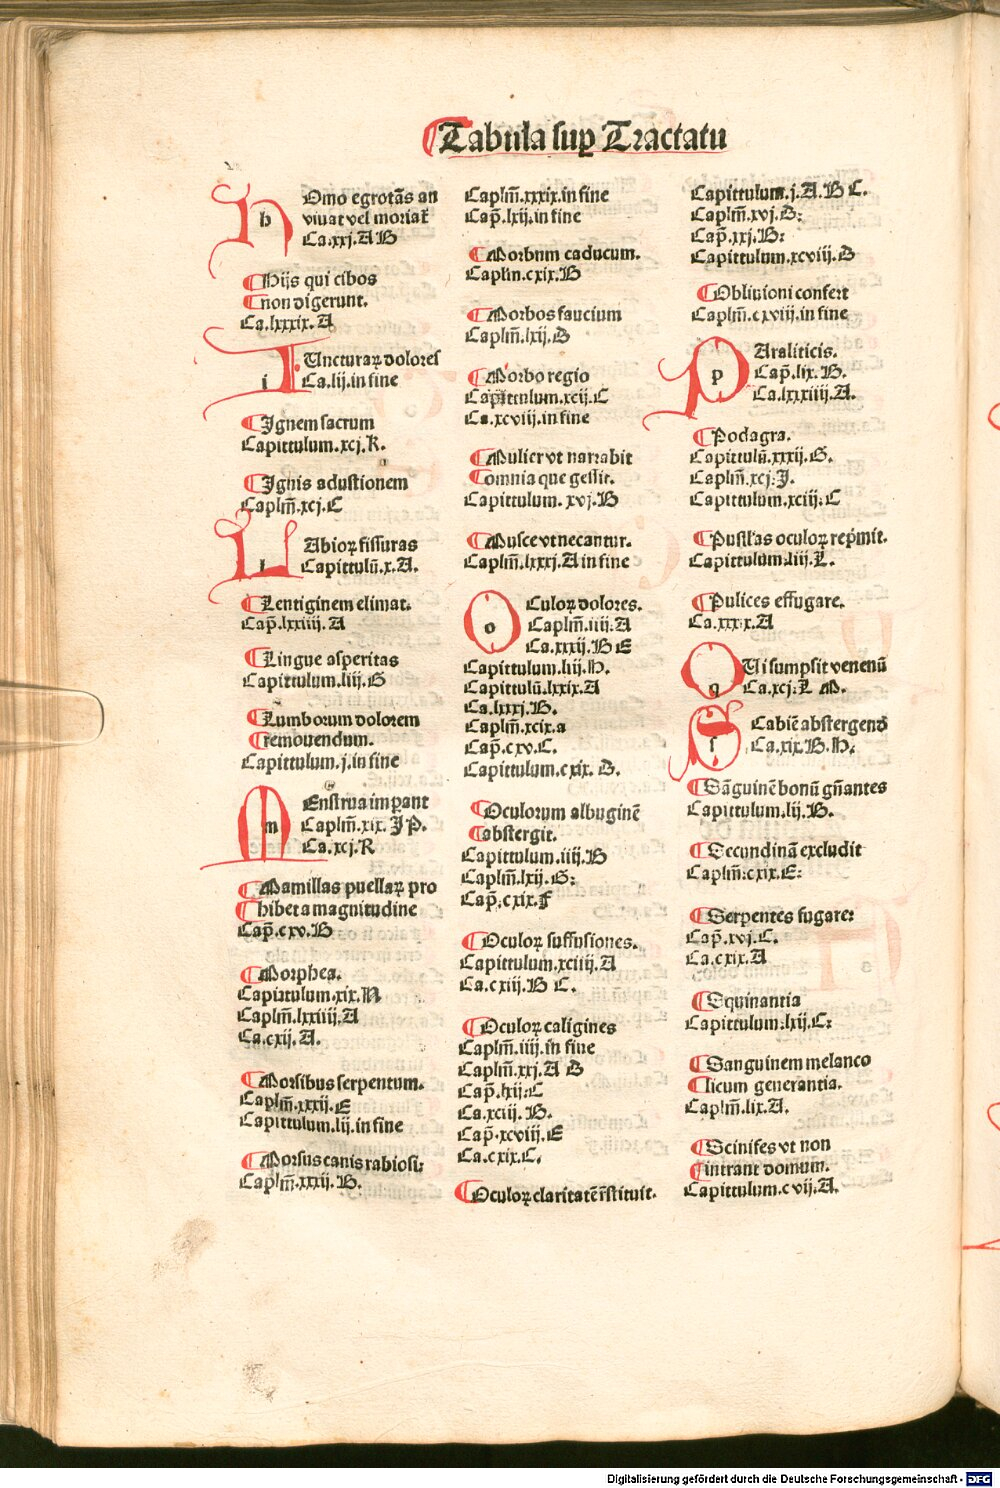 Tabula sup Tractatu
Omo egrotãs an
h
viuat vel moriať
Ca.xxj.A B
Hijs qui cibos
non digerunt.
Ca.lxxxix.A
Uncturaꝝ dolores
i
Ca.lij.in fine
Ignem sacrum
Capittulum.xcj.K.
Ignis adustionem
Caplm̃.xcj.C
Abioꝝ fissuras
l
Capittulũ.x.A.
Lentiginem elimat.
Cap̃.lxxiiij.A
Lingue asperitas
Capittulum.liij.G
Lumborum dolorem
remouendum.
Capittulum.j.in fine
Enstrua imꝑant
m
Caplm̃.xix.I P.
Ca.xcj.R
Mamillas puellaꝝ pro
hibet a magnitudine
Cap̃.cxv.B
Morphea.
Capittulum.xix.N
Caplm̃.lxxiiij.A
Ca.cxij.A.
Morsibus serpentum.
Caplm̃.xxxij.E
Capittulum.lij.in fine
Morsus canis rabiosi:
Caplm̃.xxxij.B.
Caplm̃.xxxix.in fine
Cap̃.lxij.in fine
Morbum caducum.
Caplm.cxix.B
Morbos faucium
Caplm̃.lxij.D
Morbo regio
Capittulum.xcij.C
Ca.xcviij.in fine
Mulier vt narrabit
omnia que gessit.
Capittulum.xvj.B
Musce vt necantur.
Caplm̃.lxxxj.A in fine
Culoꝝ dolores.
o
Caplm̃.iiij.A
Ca.xxxij.B E
Capittulum.liij.H.
Capittulũ.lxxix.A
Ca.lxxxj.B.
Caplm̃.xcix.a
Cap̃.cxv.C.
Capittulum.cxix.D.
Oculorum albuginẽ
abstergit.
Capittulum.iiij.B
Caplm̃.lxij.G:
Cap̃.cxix.F
Oculoꝝ suffusiones.
Capittulum.xciiij.A
Ca.cxiij.B C.
Oculoꝝ caligines
Caplm̃.iiij.in fine
Caplm̃.xxj.A D
Cap̃.lxij:C
Ca.xciij.B.
Cap̃.xcviij.E
Ca.cxix.C.
Oculoꝝ claritatẽ r̃stituit.
Capittulum.j.A.B C.
Caplm̃.xvj.D:
Cap̃.xxj.B:
Capittulum.xcviij.D
Obliuioni confert
Caplm̃.cxviij.in fine
Araliticis.
p
Cap̃.lix.B.
Ca.lxxxiiij.A.
Podagra.
Capittulũ.xxxij.G.
Caplm̃.xcj:I.
Capittulum.xciij:C
Pustl'as oculoꝝ rep̃mit.
Capittulum.liij.L.
Pulices effugare.
Ca.xxxx.A
Ui sumpsit venenũ
q
Ca.xcj:L M.
Cabiẽ abstergendo
s
Ca.xix.B.H.
Sãguinẽ bonũ gñantes
Capittulum.lij.B.
Secundinã excludit
Caplm̃:cxix.E:
Serpentes fugare:
Cap̃.xvj.C.
Ca.cxix.A
Squinantia
Capittulum:lxij.C:
Sanguinem melanco
licum generantia.
Caplm̃.lix.A.
Scinifes vt non
intrant domum.
Capittulum.cvij:A.
Digitalisierung gefördert durch die Deutsche Forschungsgemeinschaft - DFG